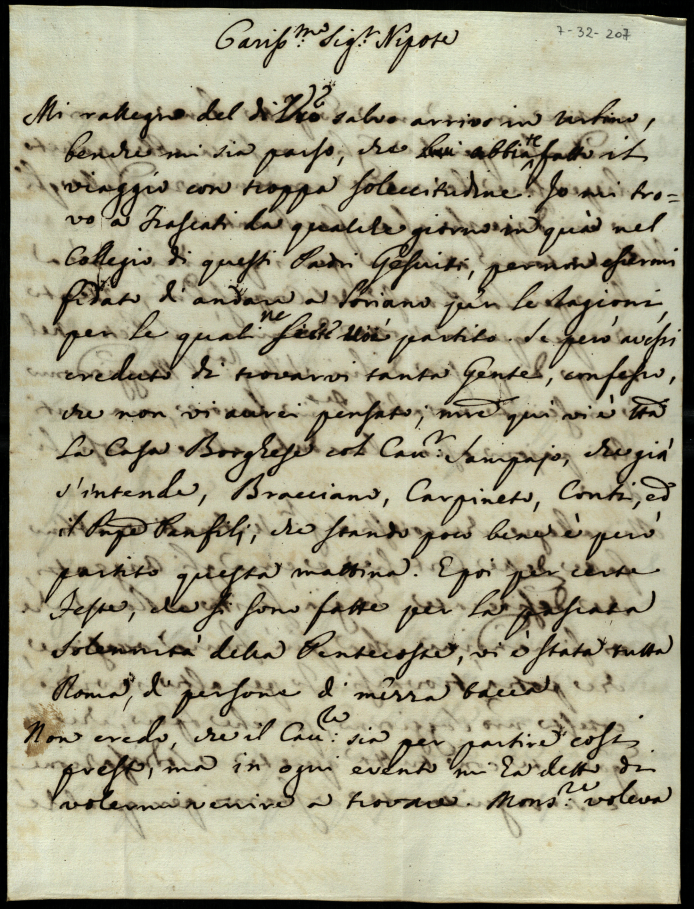 7-32-207
Cariss.mo Sig.r Nipote
Mi rallegro del di salvo arrivo in Urbino,
benche mi sia parso, che abbiate fatto il
viaggio con troppa solecitudine. Io mi tro=
vo a Frascati da qualche giorno in quà nel
Collegio di questi Padri Gesuiti, per non essermi
fidato di andare a Soriano per le stagioni,
per le quali ne siete partito. Se però avessi
creduto di trovarvi tanta Gente, confesso,
che non vi aurei pensato; mre qui vi è tta
La Casa Borghese col Cau.r Sampajo, che già
s'intende, Bracciano, Carpineto, Conti, ed
il Pnpe Panfilj, che stando poco bene è però
partito questa mattina. E poi per certe
Feste, che si sono fatte per la passata
Solennità della Pentecoste, vi è stata tutta
Roma, di persone di mezza tacca.
Non credo, che il Cau.re sia per partire così
presto, ma in ogni evento mi ha detto di
volermi venire a trovare. Mons.re voleva